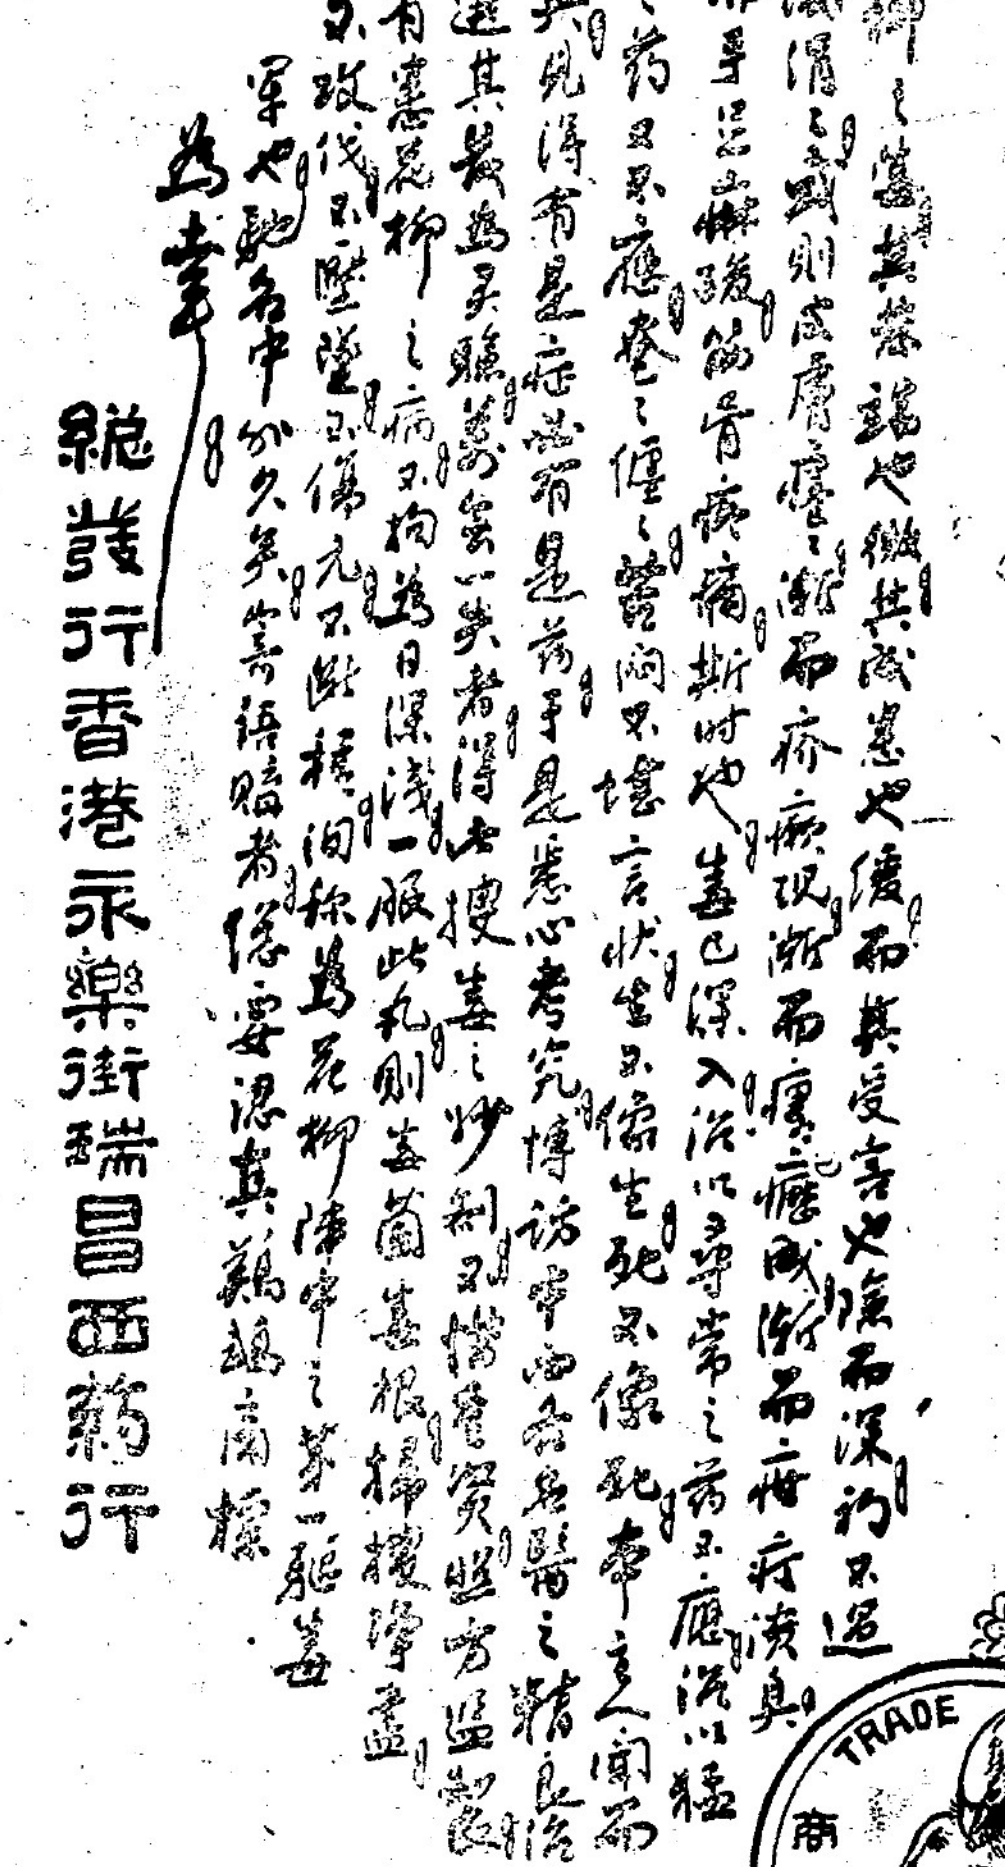 柳之毒其禁端也微其成患也緩而其受害也隱而深初不過
濁涓涓或則皮膚癢癢漸而疥癩現漸而瘻癧成漸而疳疔潰臭
手足麻酸筋骨疼痛斯時也毒已深入治以尋常之药不應治以猛
之药又不應奄奄儃儃鬱悶不堪言狀生不像生死不像死本主人閒而
共見得有是症必有是药乎是悉心考究博訪中西各名醫之精良治
選其最為灵驗萬無一失者得此搜毒之妙制不惜重資照方監製
有患花柳之病不拘為日深淺一服此丸則毒菌毒根掃搜淨盡
不攻伐不墜墮不傷元不斷種洵称為花柳陣中之第一驅毒
軍也馳名中外久矣寄語賜者總要認真鷄嘜商標
為幸
總發行香港永樂街瑞昌西药行
TRADE
商